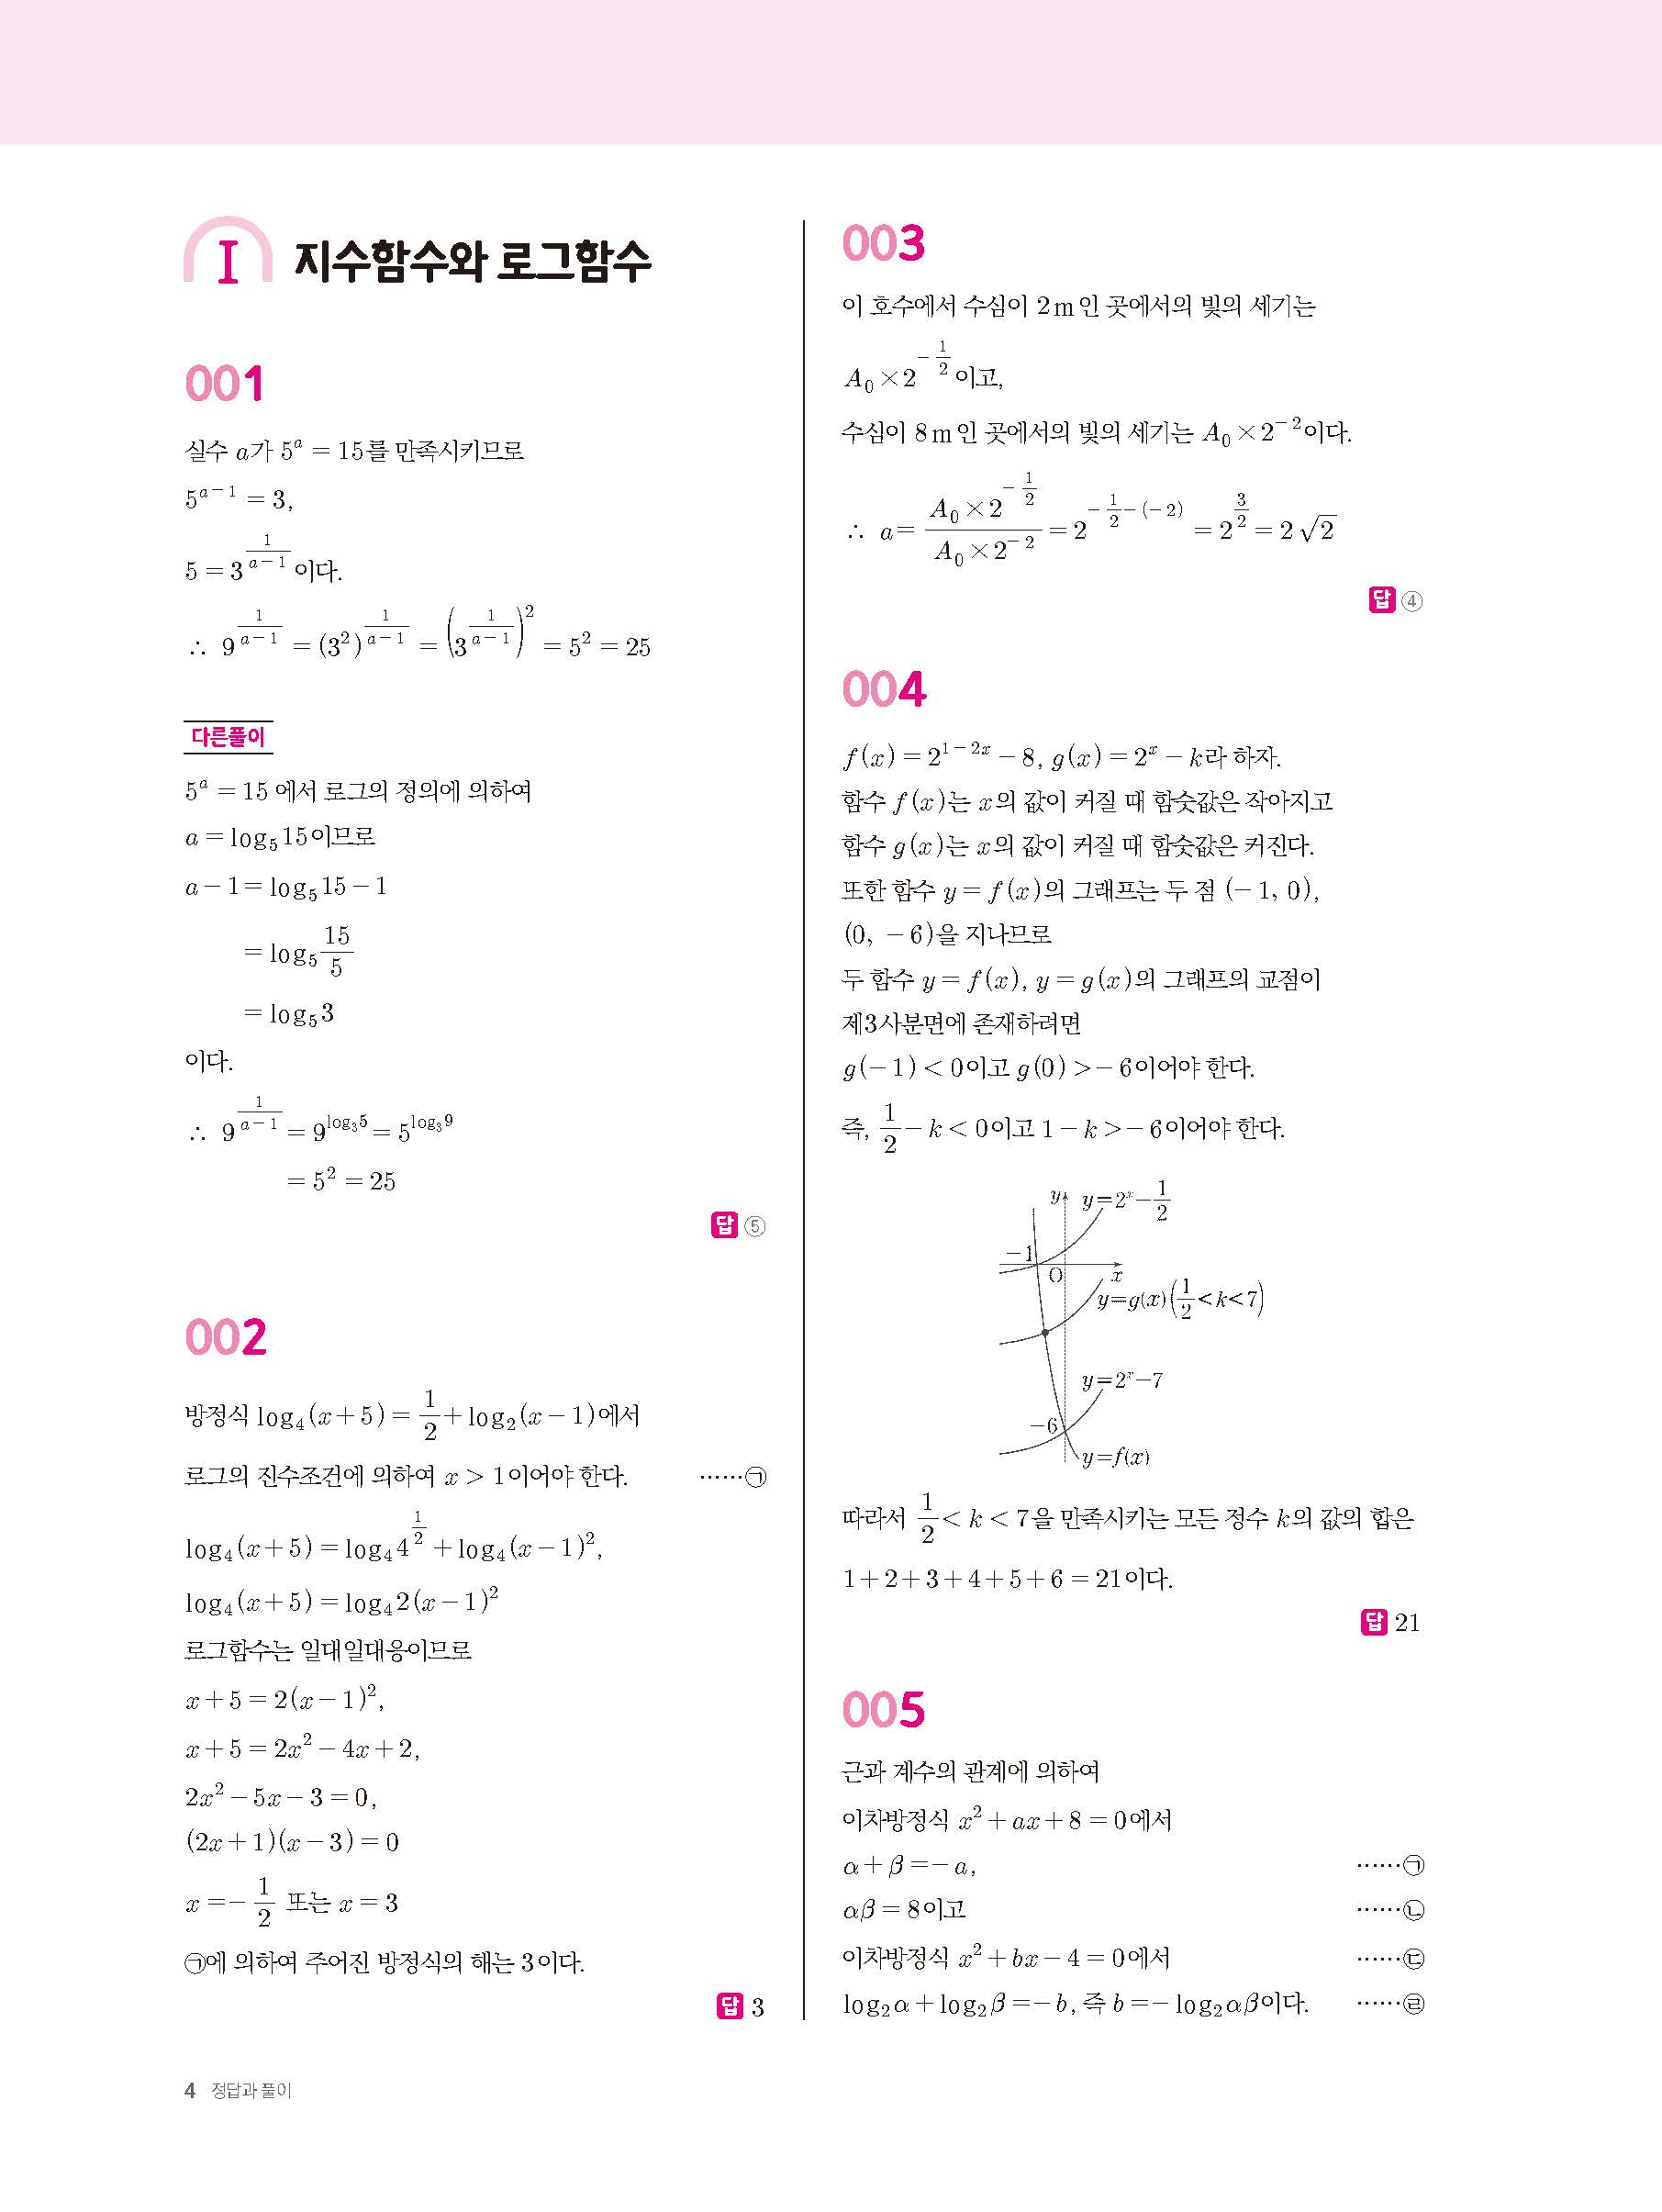 I 지수함수와 로그함수
001
실수 a가 5^a = 15를 만족시키므로
5^{a-1} = 3,
5 = 3^{\frac{1}{a-1}}이다.
∴ 9^{\frac{1}{a-1}} = (3^2)^{\frac{1}{a-1}} = (3^{\frac{1}{a-1}})^2 = 5^2 = 25
다른풀이
5^a = 15에서 로그의 정의에 의하여
a = log_5 15이므로
a-1 = log_5 15-1
= log_5 \frac{15}{5}
= log_5 3
이다.
∴ 9^{\frac{1}{a-1}} = 9^{log_3 5} = 5^{log_3 9}
= 5^2 = 25
답 ⑤
002
방정식 log_4(x+5) = \frac{1}{2}+log_2(x-1)에서
로그의 진수조건에 의하여 x > 1이어야 한다. ……㉠
log_4(x+5) = log_4 4^{\frac{1}{2}}+log_4(x-1)^2,
log_4(x+5) = log_4 2(x-1)^2
로그함수는 일대일대응이므로
x+5 = 2(x-1)^2,
x+5 = 2x^2-4x+2,
2x^2-5x-3 = 0,
(2x+1)(x-3) = 0
x = -\frac{1}{2} 또는 x = 3
㉠에 의하여 주어진 방정식의 해는 3이다.
답 3
003
이 호수에서 수심이 2m인 곳에서의 빛의 세기는
A_0×2^{-\frac{1}{2}}이고,
수심이 8m인 곳에서의 빛의 세기는 A_0×2^{-2}이다.
∴ a = \frac{A_0×2^{-\frac{1}{2}}}{A_0×2^{-2}} = 2^{-\frac{1}{2}-(-2)} = 2^{\frac{3}{2}} = 2√2
답 ④
004
f(x) = 2^{1-2x}-8, g(x) = 2^x-k라 하자.
함수 f(x)는 x의 값이 커질 때 함숫값은 작아지고
함수 g(x)는 x의 값이 커질 때 함숫값은 커진다.
또한 함수 y = f(x)의 그래프는 두 점 (-1, 0),
(0, -6)을 지나므로
두 함수 y = f(x), y = g(x)의 그래프의 교점이
제3사분면에 존재하려면
g(-1) < 0이고 g(0) > -6이어야 한다.
즉, \frac{1}{2}-k < 0이고 1-k > -6이어야 한다.
y y=2^x-\frac{1}{2}
-1
O x
y=g(x)(\frac{1}{2}<k<7)
y=2^x-7
-6
y=f(x)
따라서 \frac{1}{2} < k < 7을 만족시키는 모든 정수 k의 값의 합은
1+2+3+4+5+6 = 21이다.
답 21
005
근과 계수의 관계에 의하여
이차방정식 x^2+ax+8 = 0에서
α+β = -a, ……㉠
αβ = 8이고 ……㉡
이차방정식 x^2+bx-4 = 0에서 ……㉢
log_2 α+log_2 β = -b, 즉 b = -log_2 αβ이다. ……㉣
4 정답과 풀이